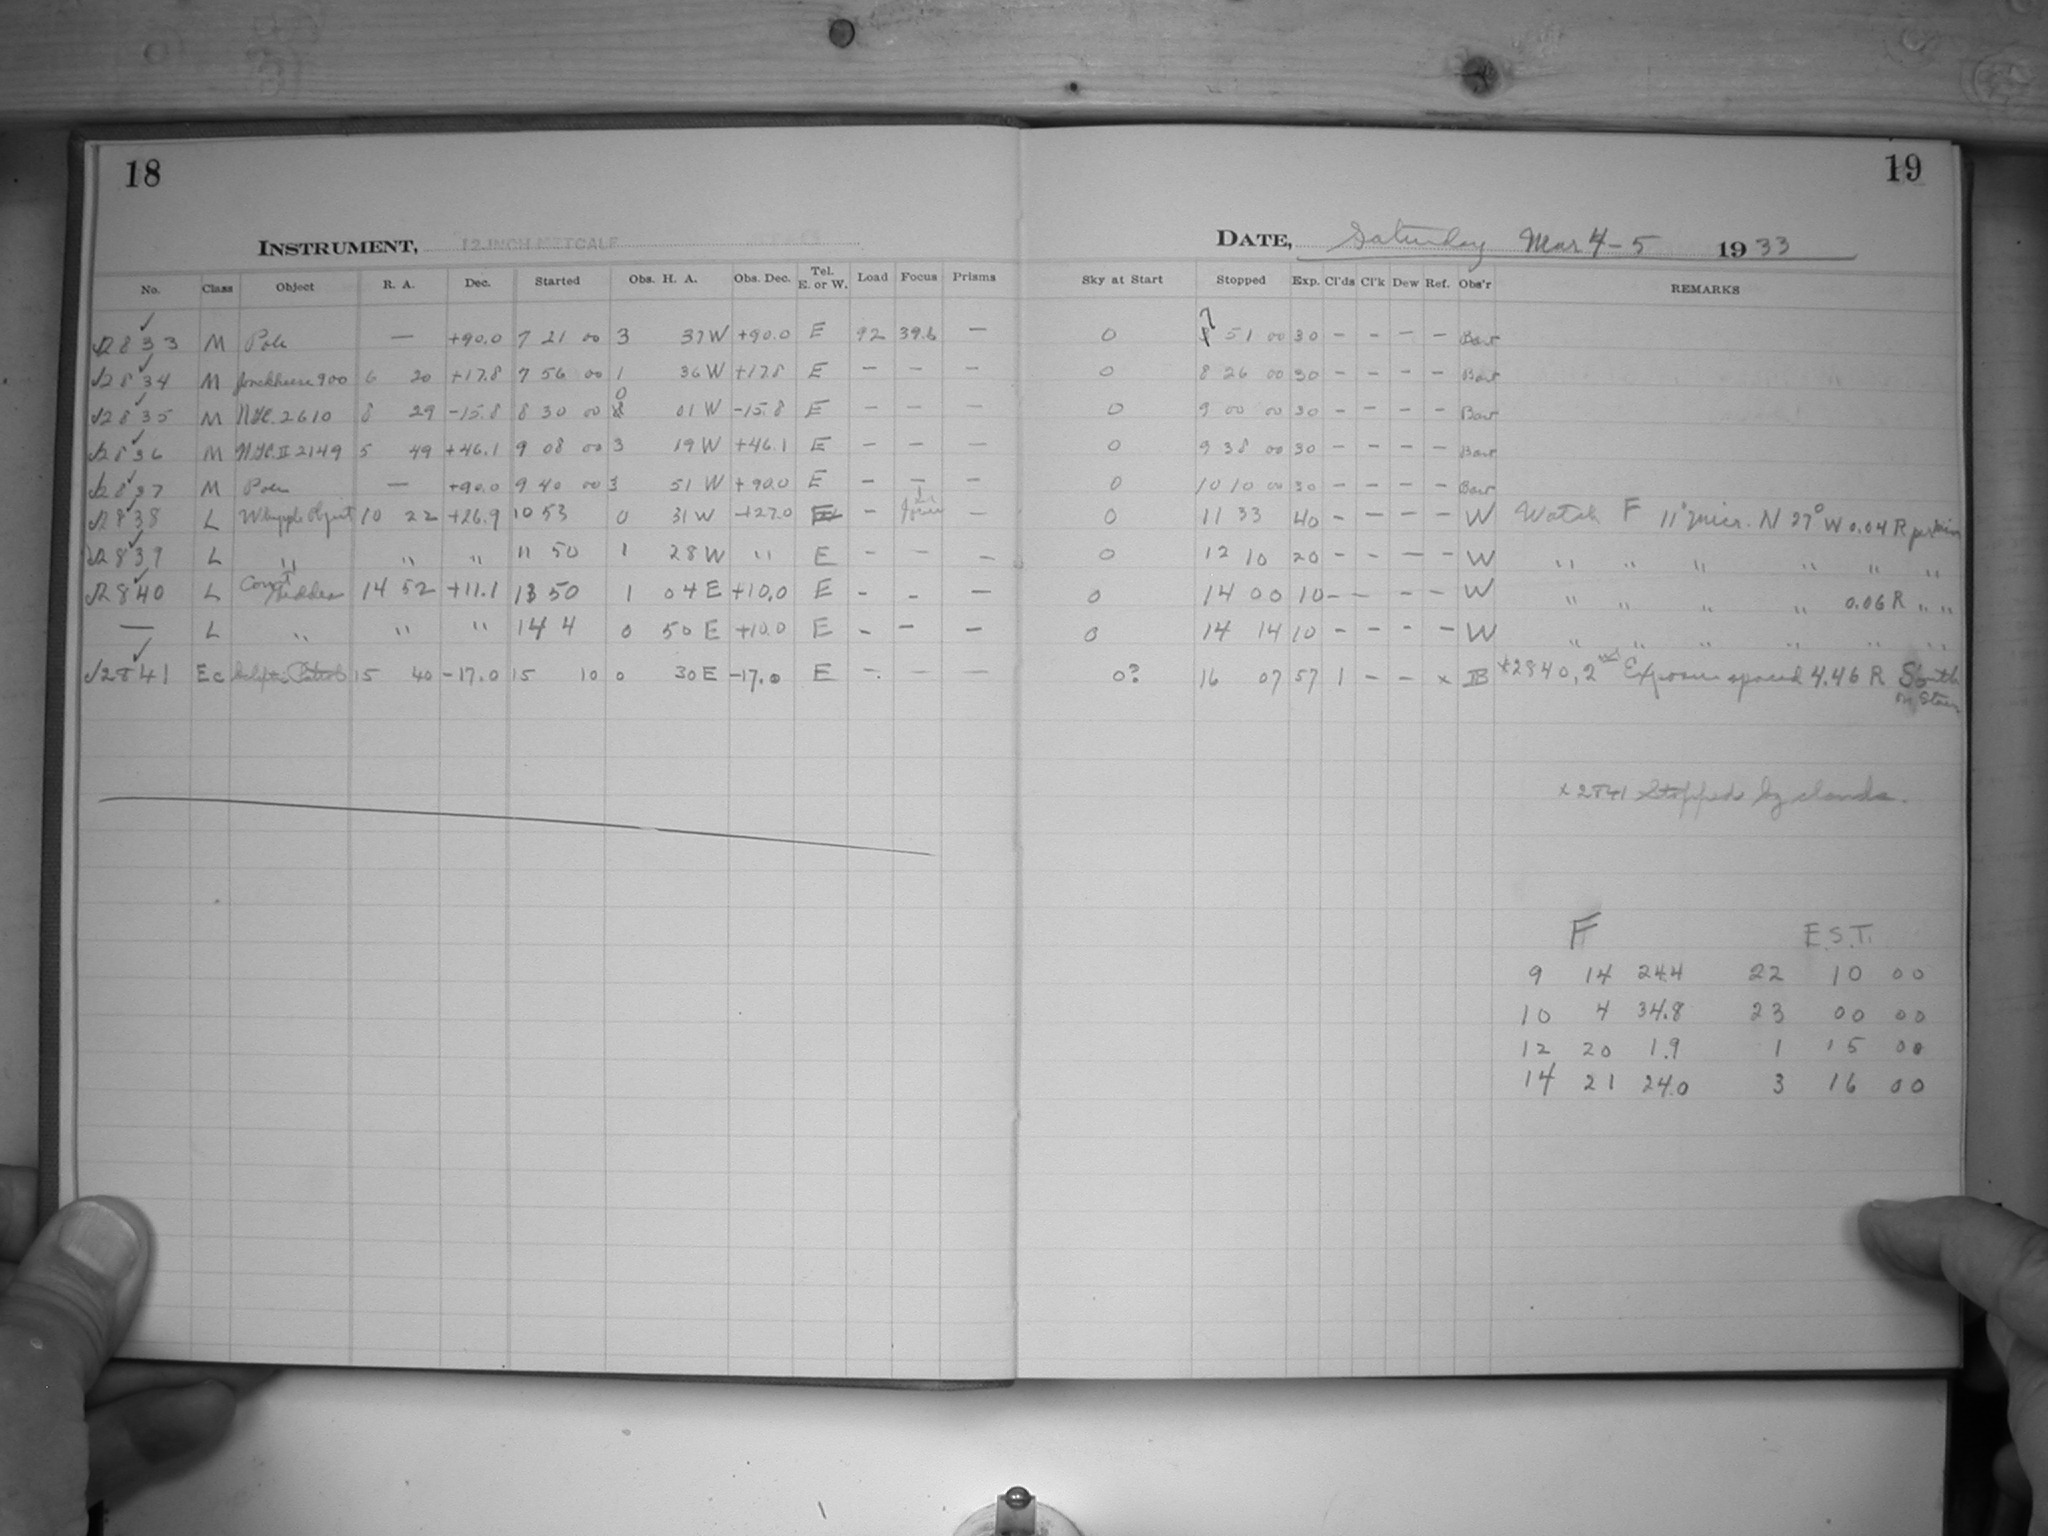 18
INSTRUMENT, 12 INCH METCALF
No. Class Object R. A. Dec. Started Obs. H. A. Obs. Dec. Tel. E. or W. Load Focus Prisms
2833 M Pole — +90.0 7 21 00 3 37 W +90.0 E 92 39.6 —
2834 M Jonckheere 900 6 20 +17.8 7 56 00 1 36 W +17.8 E — — —
2835 M 2610 8 29 -15.8 8 30 00 0 01 W -15.8 E — — —
2836 M II 2149 5 49 +46.1 9 08 00 3 19 W +46.1 E — — —
2837 M Pole — +90.0 9 40 00 3 51 W +90.0 E — — —
2838 L Whipple Object 10 22 +26.9 10 53 0 31 W +27.0 E — —
2839 L " " " 11 50 1 28 W " E — — —
2840 L 14 52 +11.1 13 50 1 04 E +10.0 E — — —
— L " " " 14 4 0 50 E +10.0 E — — —
2841 Ec 15 40 -17.0 15 10 0 30 E -17.0 E — — —
19
DATE, Saturday Mar 4-5 1933
Sky at Start Stopped Exp. Cl'ds Cl'k Dew Ref. Obs'r REMARKS
0 7 51 00 30 — — — — Baw
0 8 26 00 30 — — — — Baw
0 9 00 00 30 — — — — Baw
0 9 38 00 30 — — — — Baw
0 10 10 00 30 — — — — Baw
0 11 33 40 — — — — W Watch F 11" micr. N 27° W 0.04 R per min
0 12 10 20 — — — — W " " " " " "
0 14 00 10 — — — — W " " " " 0.06 R " "
0 14 14 10 — — — — W " " " " " "
0? 16 07 57 1 — — x x2840, 2nd Exposure spaced 4.46 R South
on Stars
x 2841 Stopped by clouds.
F E.S.T.
9 14 24.4 22 10 00
10 4 34.8 23 00 00
12 20 1.9 1 15 00
14 21 24.0 3 16 00